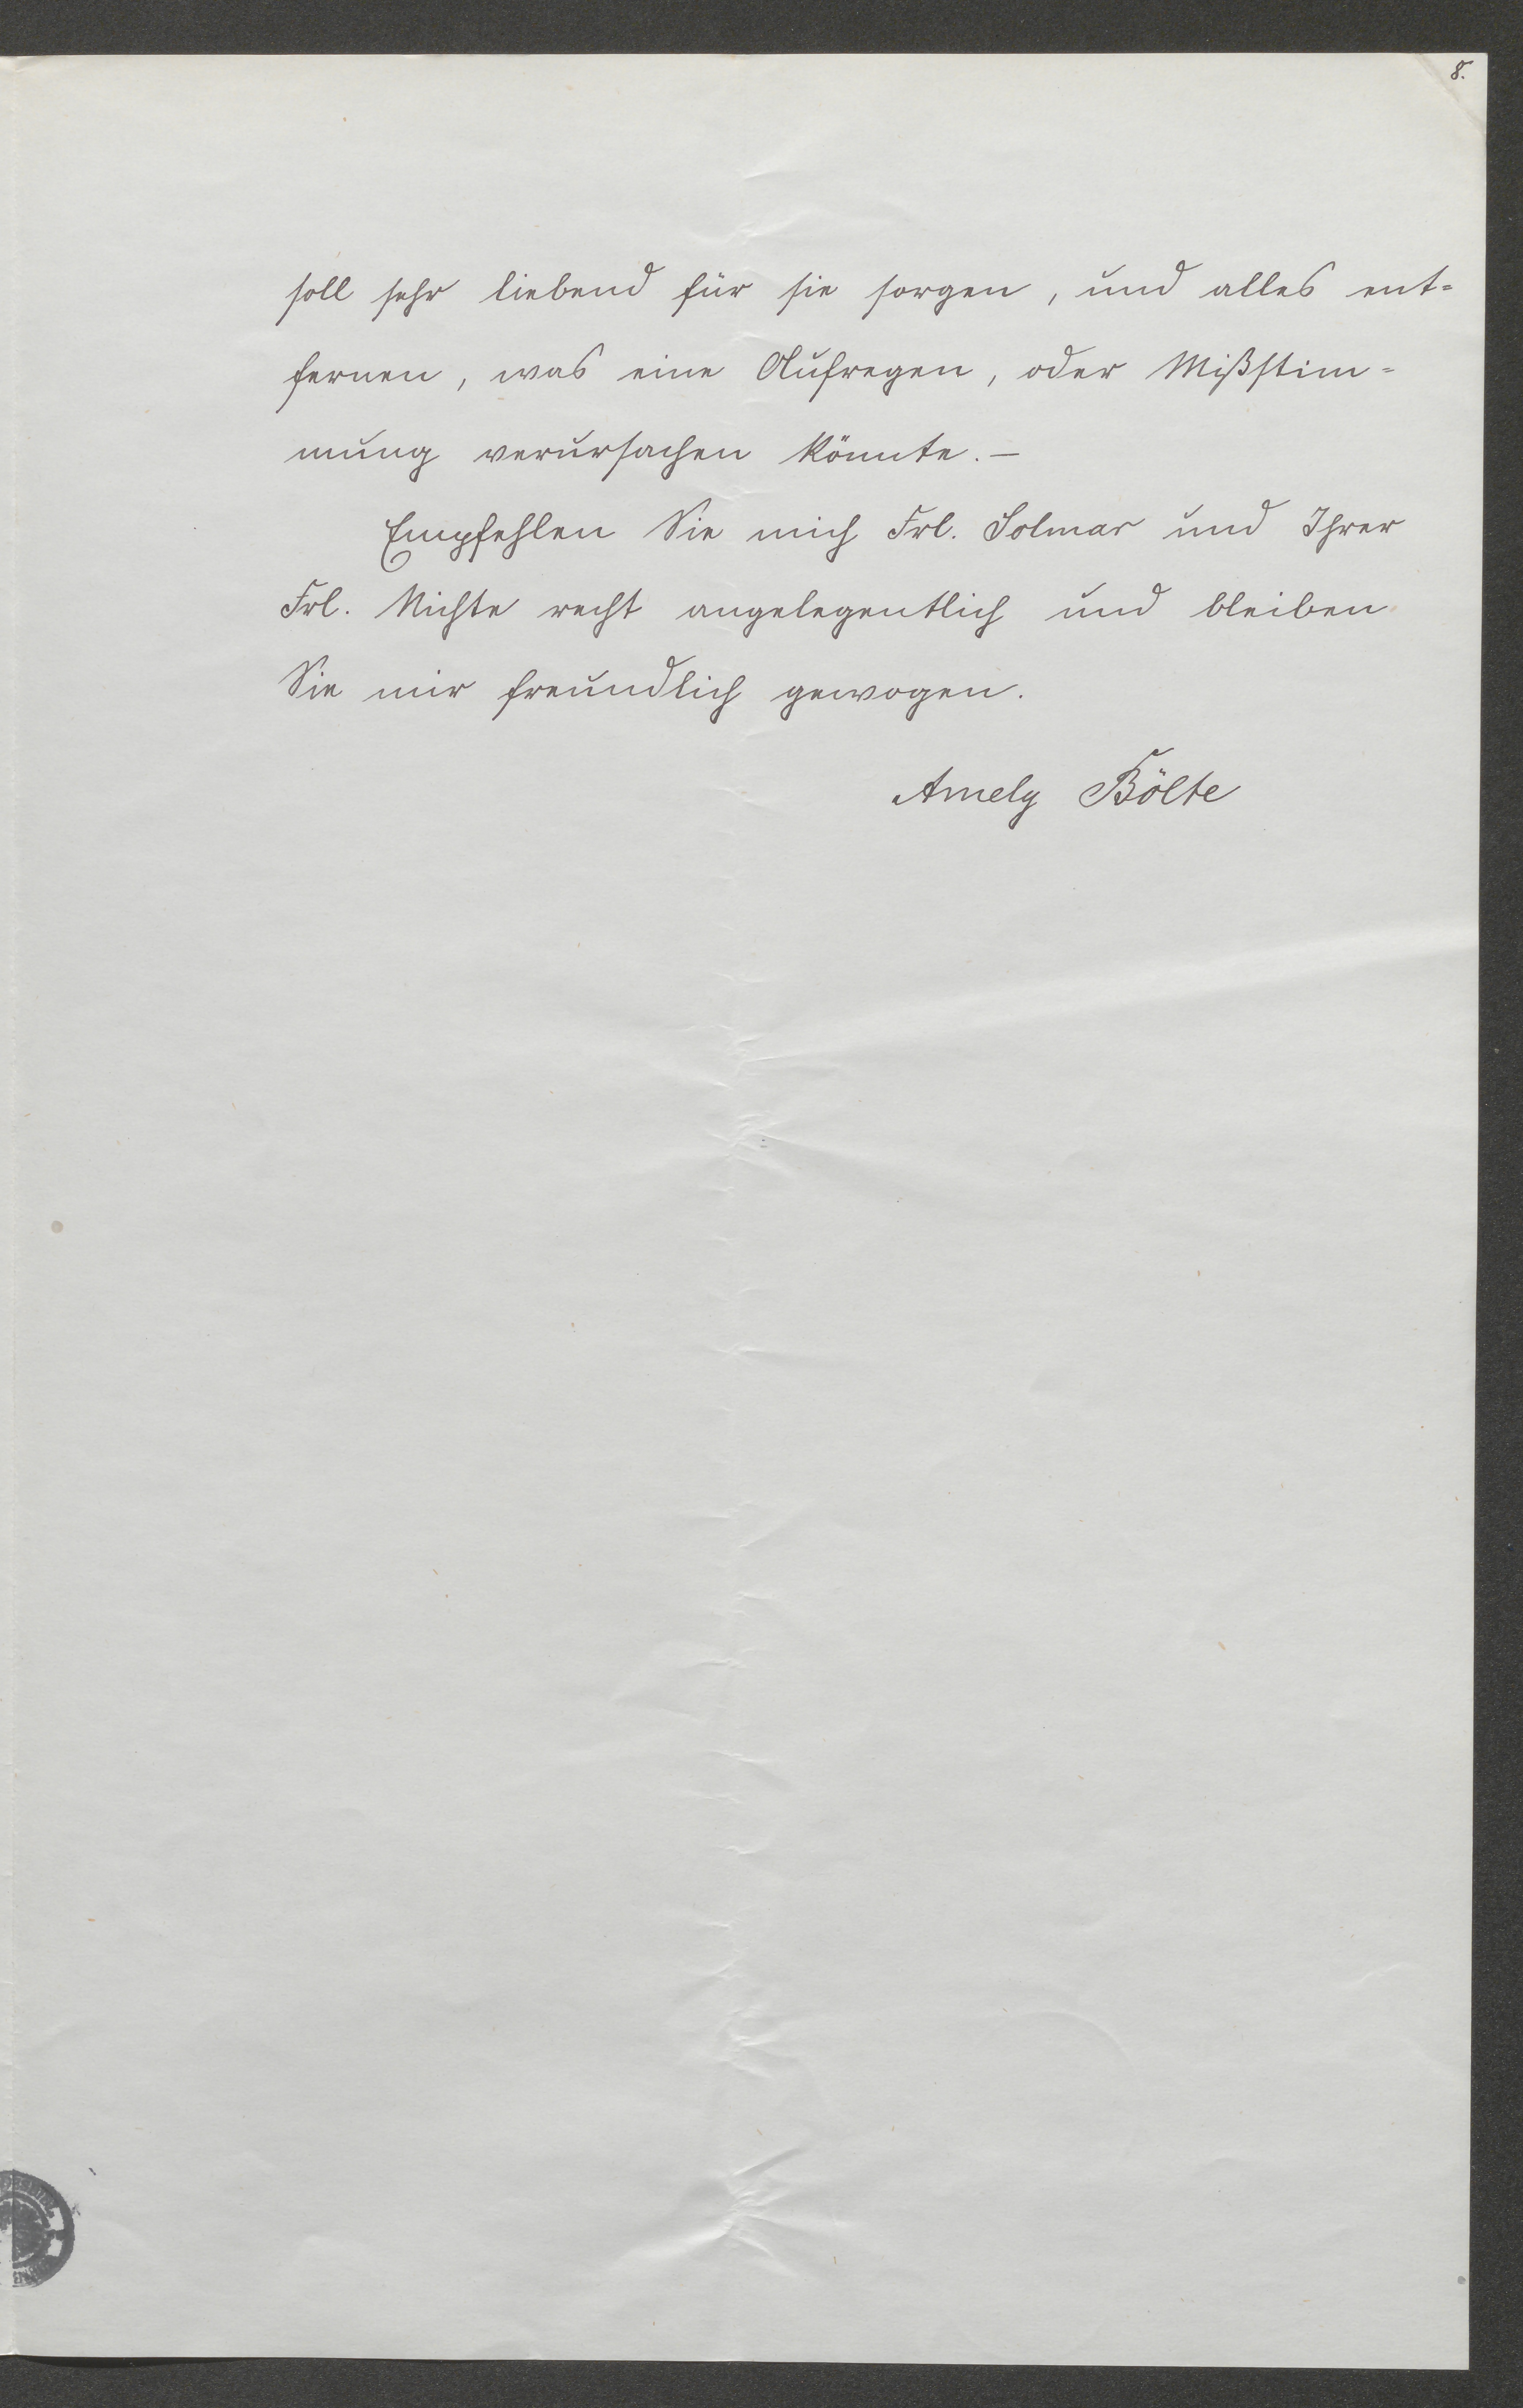 8.
soll sehr liebend für sie sorgen, und alles ent-
fernen, was eine Aufregen, oder Mißstim-
mung verursachen könnte. —
Empfehlen Sie mich Frl. Solmar und Ihrer
Frl. Nichte recht angelegentlich und bleiben
Sie mir freundlich gewogen.
Amely Bölte